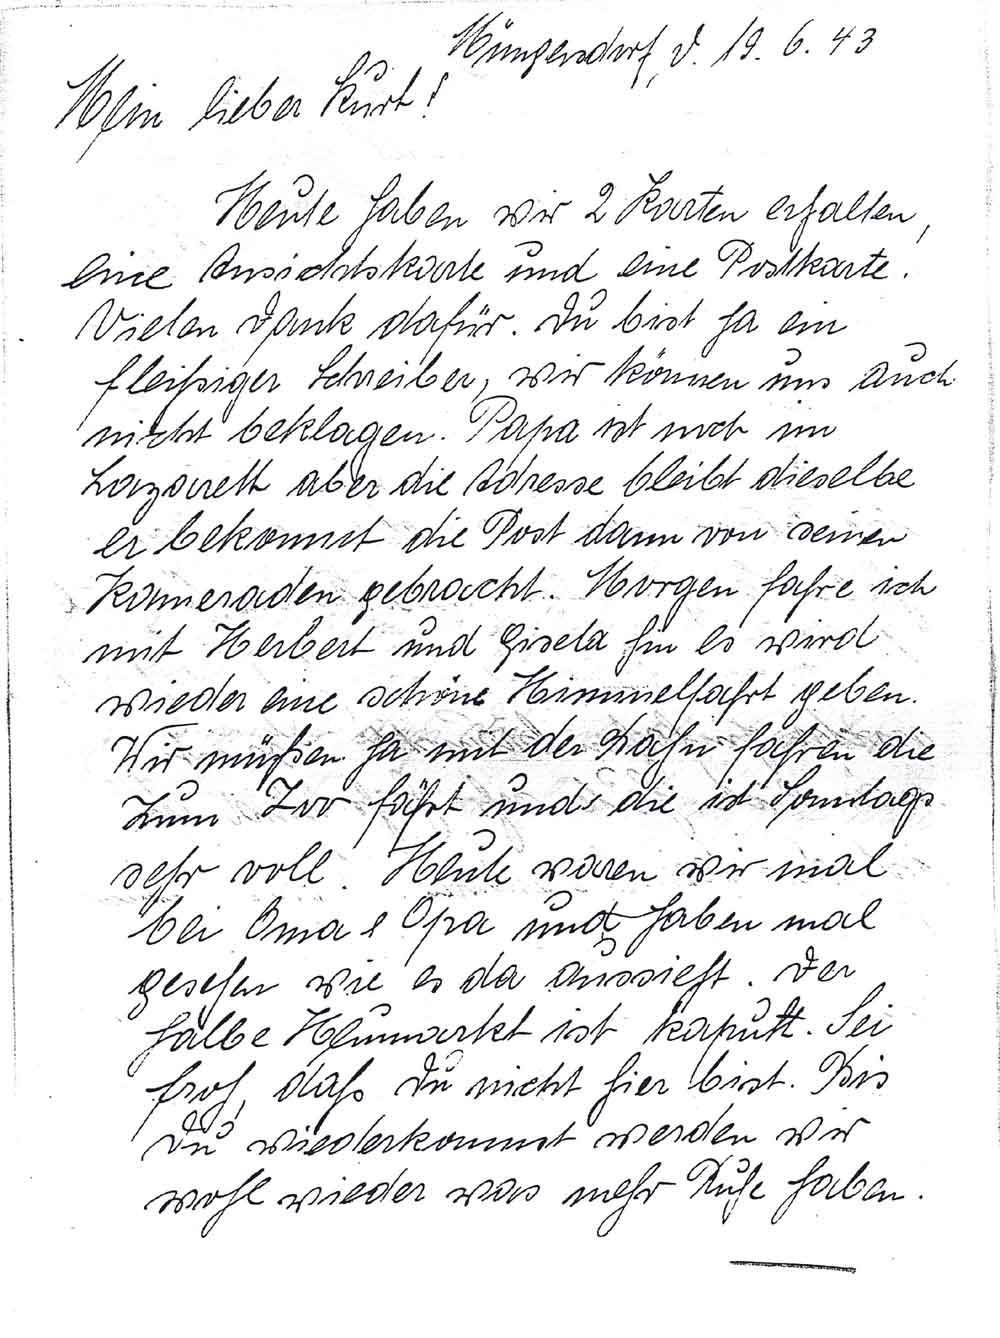 Müngersdorf, d. 19. 6. 43
Mein lieber Kurt!
Heute haben wir 2 Karten erhalten,
eine Ansichtskarte und eine Postkarte.
Vielen Dank dafür. Du bist ja ein
fleißiger Schreiber, wir können uns auch
nicht beklagen. Papa ist noch im
Lazarett aber die Adresse bleibt dieselbe
er bekommt die Post dann von seinen
Kameraden gebracht. Morgen fahre ich
mit Herbert und Gisela hin es wird
wieder eine schöne Himmelfahrt geben.
Wir müßen ja mit der Bahn fahren die
zum Zoo fährt und die ist Sonntags
sehr voll. Heute waren wir mal
bei Oma & Opa und haben mal
gesehen wie es da aussieht. Der
halbe Heumarkt ist kaputt. Sei
froh, daß Du nicht hier bist. Bis
Du wiederkommst werden wir
wohl wieder was mehr Ruhe haben.